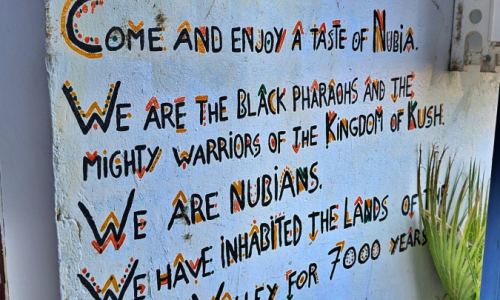 Come and enjoy a taste of Nubia.
We are the Black Pharaohs and the
mighty warriors of the Kingdom of Kush.
We are Nubians.
We have inhabited the Lands of
We
Valley for 7000 years